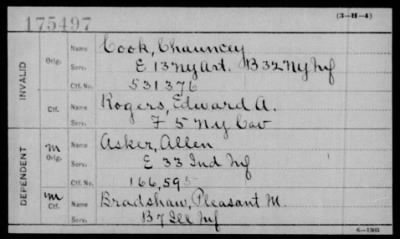 175497
(3-H-4)
INVALID
Orig.
Name Cook, Chauncey
Serv. E 13 NY Art. B 32 NY Inf
Ctf. No. 531376
Ctf.
Name Rogers, Edward A.
Serv. F 5 N.Y Cav
DEPENDENT
m Orig.
Name Asker, Allen
Serv. E 33 Ind Inf
Ctf. No. 166,595
m Ctf.
Name Bradshaw, Pleasant M.
Serv. B 7 Ill Inf